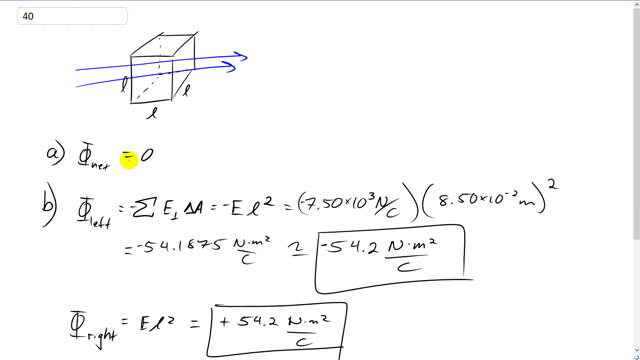 40
l
l
l
a) Φnet = 0
b) Φleft = -∑ E⊥ ΔA = -E l² = (-7.50×10³ N/C) (8.50×10⁻² m)²
= -54.1875 N·m²/C ≃ -54.2 N·m²/C
Φright = E l² = +54.2 N·m²/C